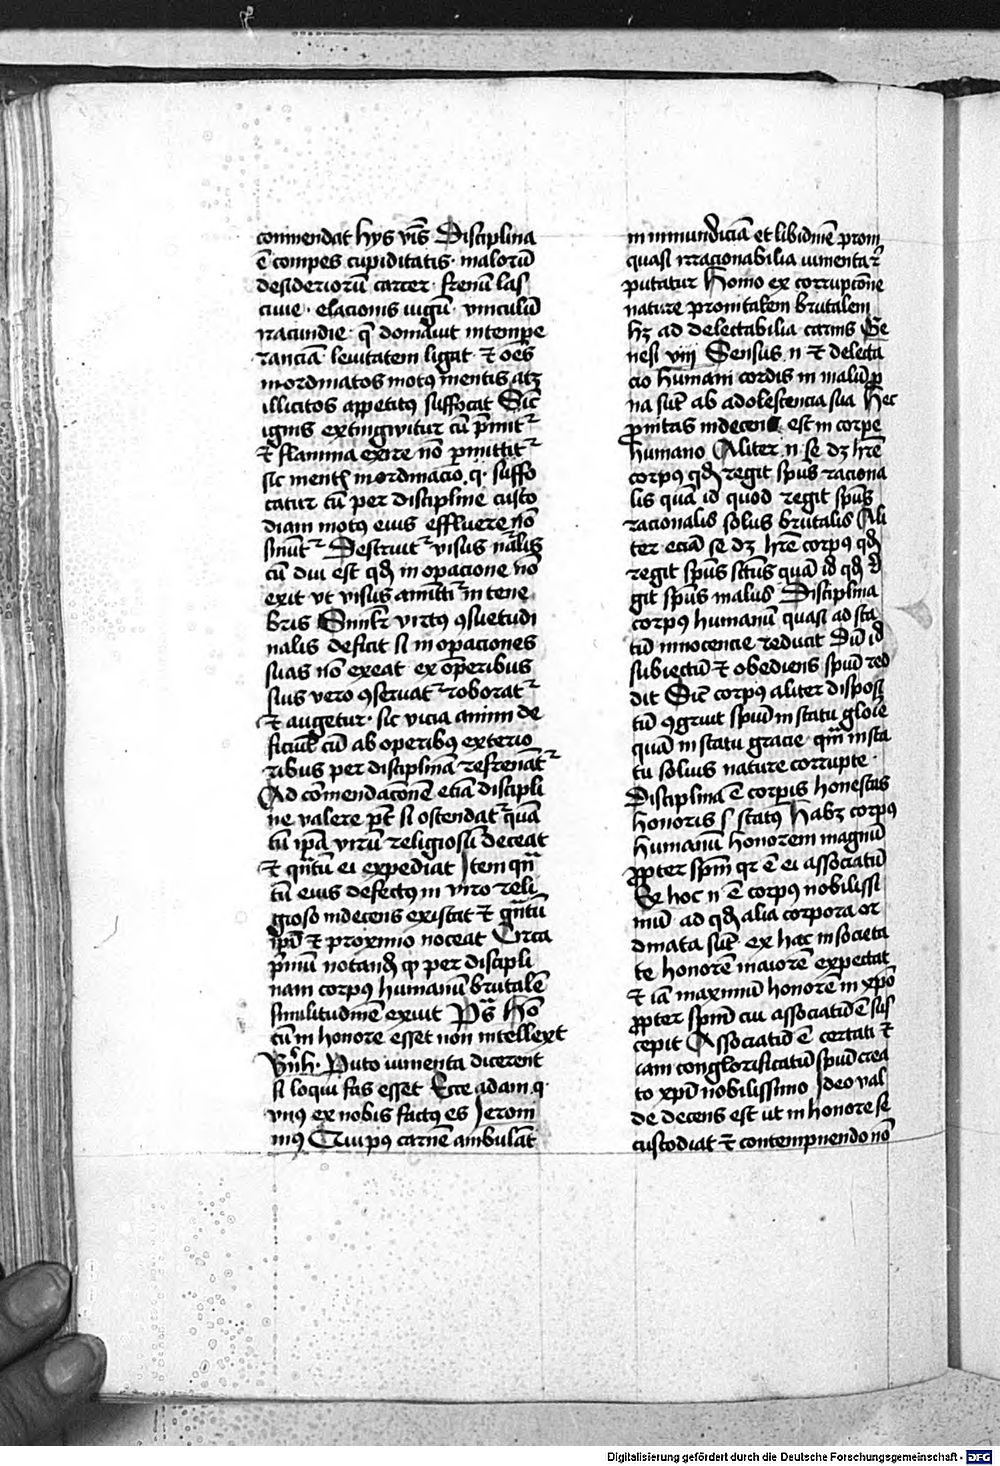 commendat hys v̄is Disciplina
ē compes cupiditatis · malorū
desideriorū carcer · frenū las
ciuie · elacionis iugū · vinculū
iracundie · q̄ domāuit intempe
ranciā leuitatem ligat et oēs
inordinatos motꝰ mentis atqꝫ
illicitos appetitꝰ suffocat Sic̄
ignis extingwitur cū p̄mitr
et flamma exire nō p̄mittitr
sic mentis inordinacio q · suffo
catur cū per discipline custo
diam motꝰ eius effluere nō
sinūtr Destruitr visus nālis
cū diu est qd in opacione nō
exit vt visus amittitr in tene
bris Similr virtꝰ ꝯsuetudi
nalis deficit si in opaciones
suas nō exeat ex operibus
suis vero ꝯseruatr roboratr
et augetur · sic vicia animi de
ficiūt cū ab operibꝰ exterio
ribus per disciplinā refrenātr
Ad cōmendacōnē etiā discipli
ne valere pt̄ si ostendatr quā
tū ip̄a virū religiosū deceat
et qn̄tū ei expediat Item qn̄
tū eius defectꝰ in viro reli
gioso indecens existat et qn̄tū
ip̄i et proximo noceat Circa
p̄mū notand ꝙ per discipli
nam corpꝰ humanū brutalē
similitudinē exiuit Ps̄ Hō
cū in honore esset non intellext
Bn̄h · Puto iumenta dicerent
si loqui fas esset Ecce adam q ·
vnꝰ ex nobis factꝰ es Jeroni
mꝰ Cuipꝰ carnē ambulāt
in inmundiciā et libidinē pron
quasi irracionabilia iumentar
putatur Homo ex corrupcōne
nature pronitatem brutalem
hꝫ ad delectabilia carnis Ge
nesi viij Sensus n et delecta
cio humani cordis in malū p
na sūt ab adolescencia sua Hec
pnitas indecens est in corpe
humano Aliter n se dꝫ hr̄e
corpꝰ qd regit sp̄us raciona
lis quā id quod regit sp̄us
racionalis solus brutalis Ali
ter eciā se dꝫ hr̄e corpꝰ qd
regit sp̄us sc̄tus quā id qd re
git sp̄us malus Disciplina
corpꝰ humanū quasi ad sta
tū innocencie reducit Dū id
subiectū et obediens sp̄ui red
dit Sic̄ corpꝰ aliter disposi
tū ꝯgruit sp̄ui in statu gloie
quā in statu gracie qm̄ in sta
tu solius nature corrupte ·
Disciplina ē corpis honestas
honoris s statꝰ Habꝫ corpꝰ
humanū honorem magnū
ppter spm̄ qr ē ei associatū
De hoc n ē corpꝰ nobilissi
mū ad qd alia corpora or
dinata sūt ex hac in societa
te honorē maiorē expectat
et iā maximū honorē in xpō
ppter spm̄ cui associatū ē sus
cepit Associatū ē certati et
iam conglorificatū sp̄ui crea
to xpī nobilissimo Ideo val
de decens est ut in honore se
custodiat et contempnendo nō
Digitalisierung gefördert durch die Deutsche Forschungsgemeinschaft - DFG